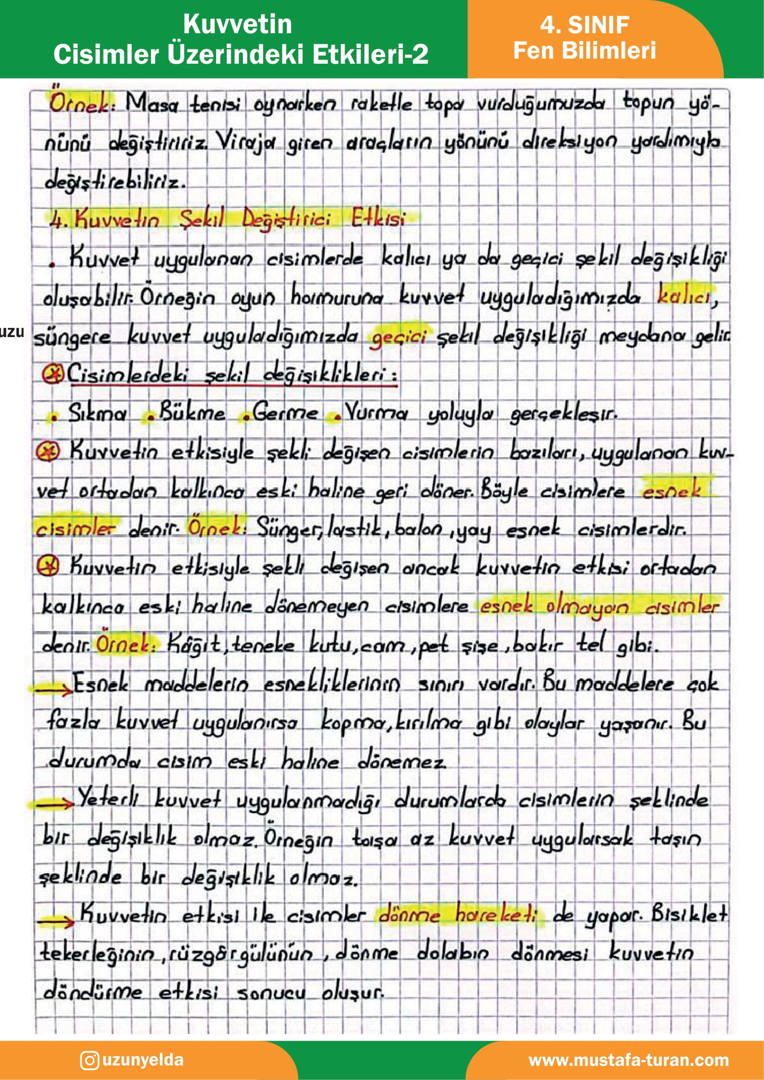 Kuvvetin
Cisimler Üzerindeki Etkileri-2
4. SINIF
Fen Bilimleri
Örnek: Masa tenisi oynarken raketle topa vurduğumuzda topun yö-
nünü değiştiririz. Viraja giren araçların yönünü direksiyon yardımıyla
değiştirebiliriz.
4. Kuvvetin Şekil Değiştirici Etkisi
. Kuvvet uygulanan cisimlerde kalıcı ya da geçici şekil değişikliği
oluşabilir. Örneğin oyun hamuruna kuvvet uyguladığımızda kalıcı,
uzu
süngere kuvvet uyguladığımızda geçici şekil değişikliği meydana gelir.
Cisimlerdeki şekil değişiklikleri:
. Sıkma . Bükme . Germe . Vurma yoluyla gerçekleşir.
Kuvvetin etkisiyle şekli değişen cisimlerin bazıları, uygulanan kuv-
vet ortadan kalkınca eski haline geri döner. Böyle cisimlere esnek
cisimler denir. Örnek: Sünger, lastik, balon, yay esnek cisimlerdir.
Kuvvetin etkisiyle şekli değişen ancak kuvvetin etkisi ortadan
kalkınca eski haline dönemeyen cisimlere esnek olmayan cisimler
denir. Örnek: Kâğıt, teneke kutu, cam, pet şişe, bakır tel gibi.
→ Esnek maddelerin esnekliklerinin sınırı vardır. Bu maddelere çok
fazla kuvvet uygulanırsa kopma, kırılma gibi olaylar yaşanır. Bu
durumda cisim eski haline dönemez.
→ Yeterli kuvvet uygulanmadığı durumlarda cisimlerin şeklinde
bir değişiklik olmaz. Örneğin taşa az kuvvet uygularsak taşın
şeklinde bir değişiklik olmaz.
→ Kuvvetin etkisi ile cisimler dönme hareketi de yapar. Bisiklet
tekerleğinin, rüzgârgülünün, dönme dolabın dönmesi kuvvetin
döndürme etkisi sonucu oluşur.
uzunyelda
www.mustafa-turan.com